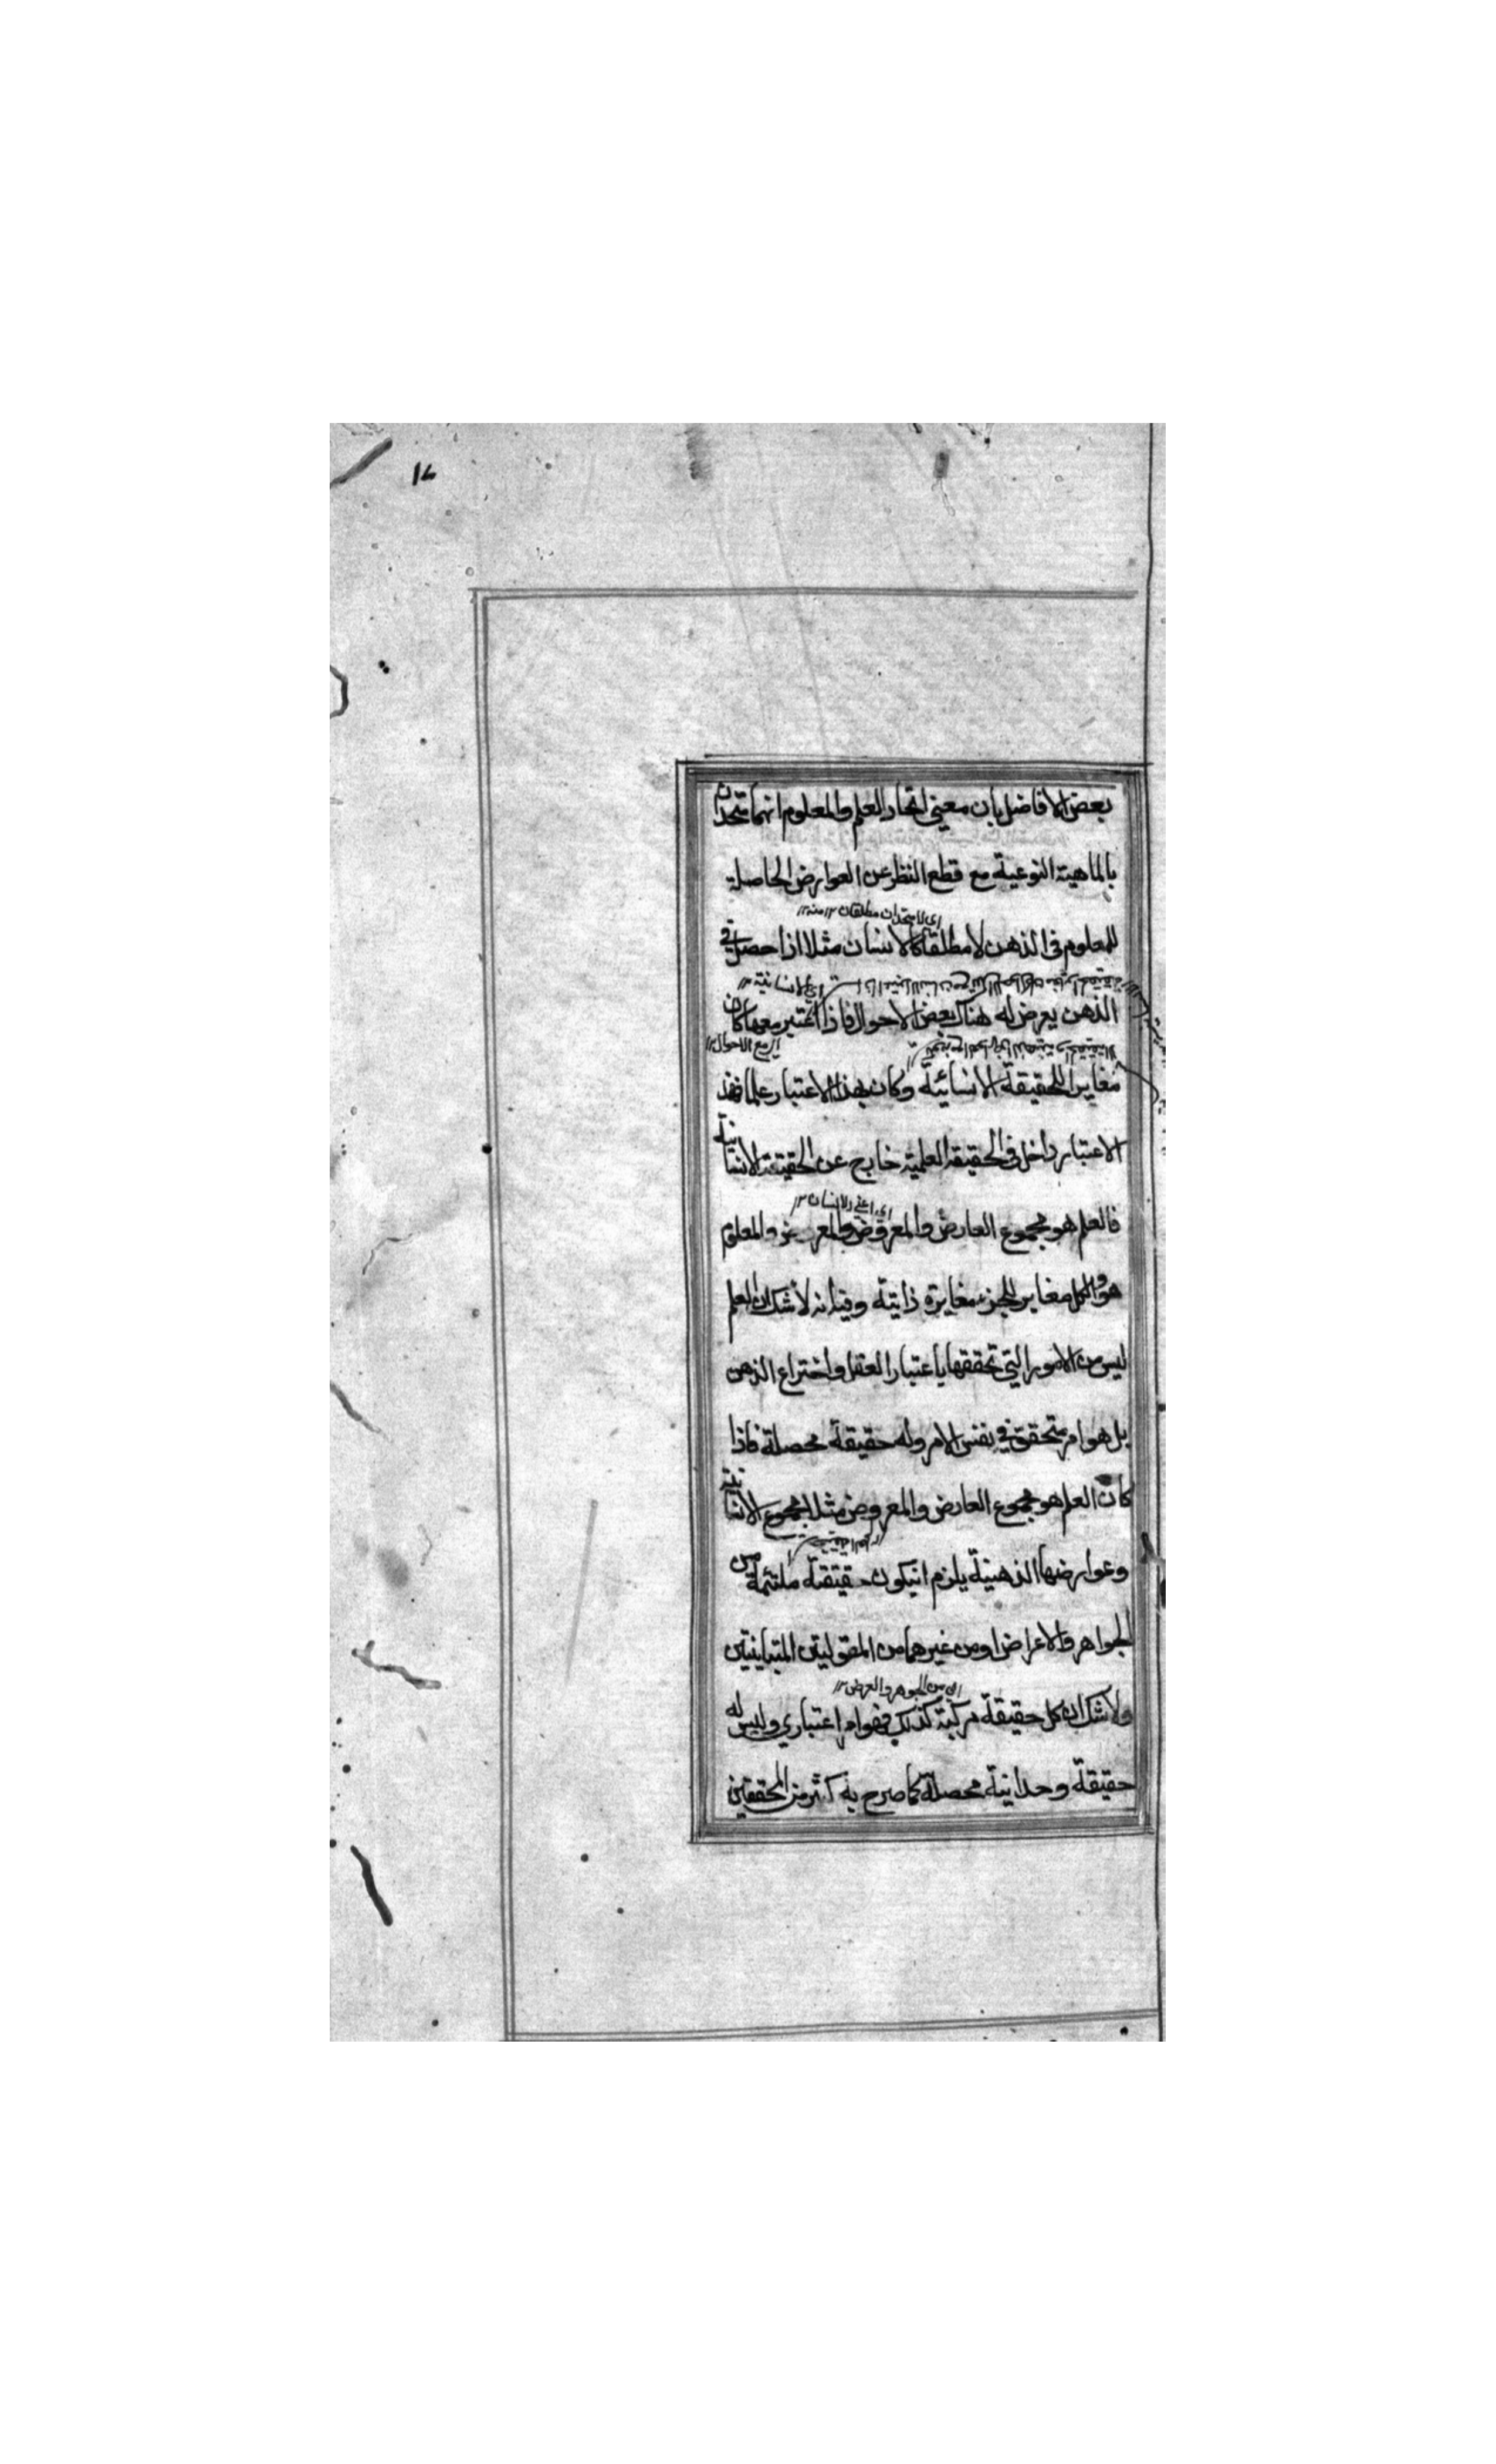 ١٧
بعض الافاضل بان معنى اتحاد العلم والمعلوم انهما متحدان
بالماهية النوعية مع قطع النظر عن العوارض الحاصلة
اى لا متحدان مطلقا ١٢ منه ١٢
للمعلوم فى الذهن لا مطلقا كالانسان مثلا اذا حصل فى
اى الانسانية ١٢
الذهن يعرض له هناك بعض الاحوال فاذا اعتبر معها كان
اى مع الاحوال ١٢
مغايرا للحقيقة الانسانية وكان بهذا الاعتبار علما فهذ
الاعتبار داخل فى الحقيقة العلمية خارج عن الحقيقة الانسانية
اى اعنى الانسان ١٢
فالعلم هو مجموع العارض والمعروض والمعروض والمعلوم
هو والكل مغاير للجزء مغايرة ذاتية وفيه انه لا شك ان العلم
ليس من الامور التى تحققها باعتبار العقل واختراع الذهن
بل هو امر متحقق فى نفس الامر وله حقيقة محصلة فاذا
كان العلم هو مجموع العارض والمعروض مثلا مجموع الانسانية
وعوارضها الذهنية يلزم ان يكون حقيقة ملتئمة من
الجواهر والاعراض او من غيرهما من المقولتين المتباينتين
اى من الجوهر والعرض ١٢
ولا شك ان كل حقيقة مركبة كذلك فهو امر اعتبارى وليس له
حقيقة وحدانية محصلة كما صرح به كثير من المحققين